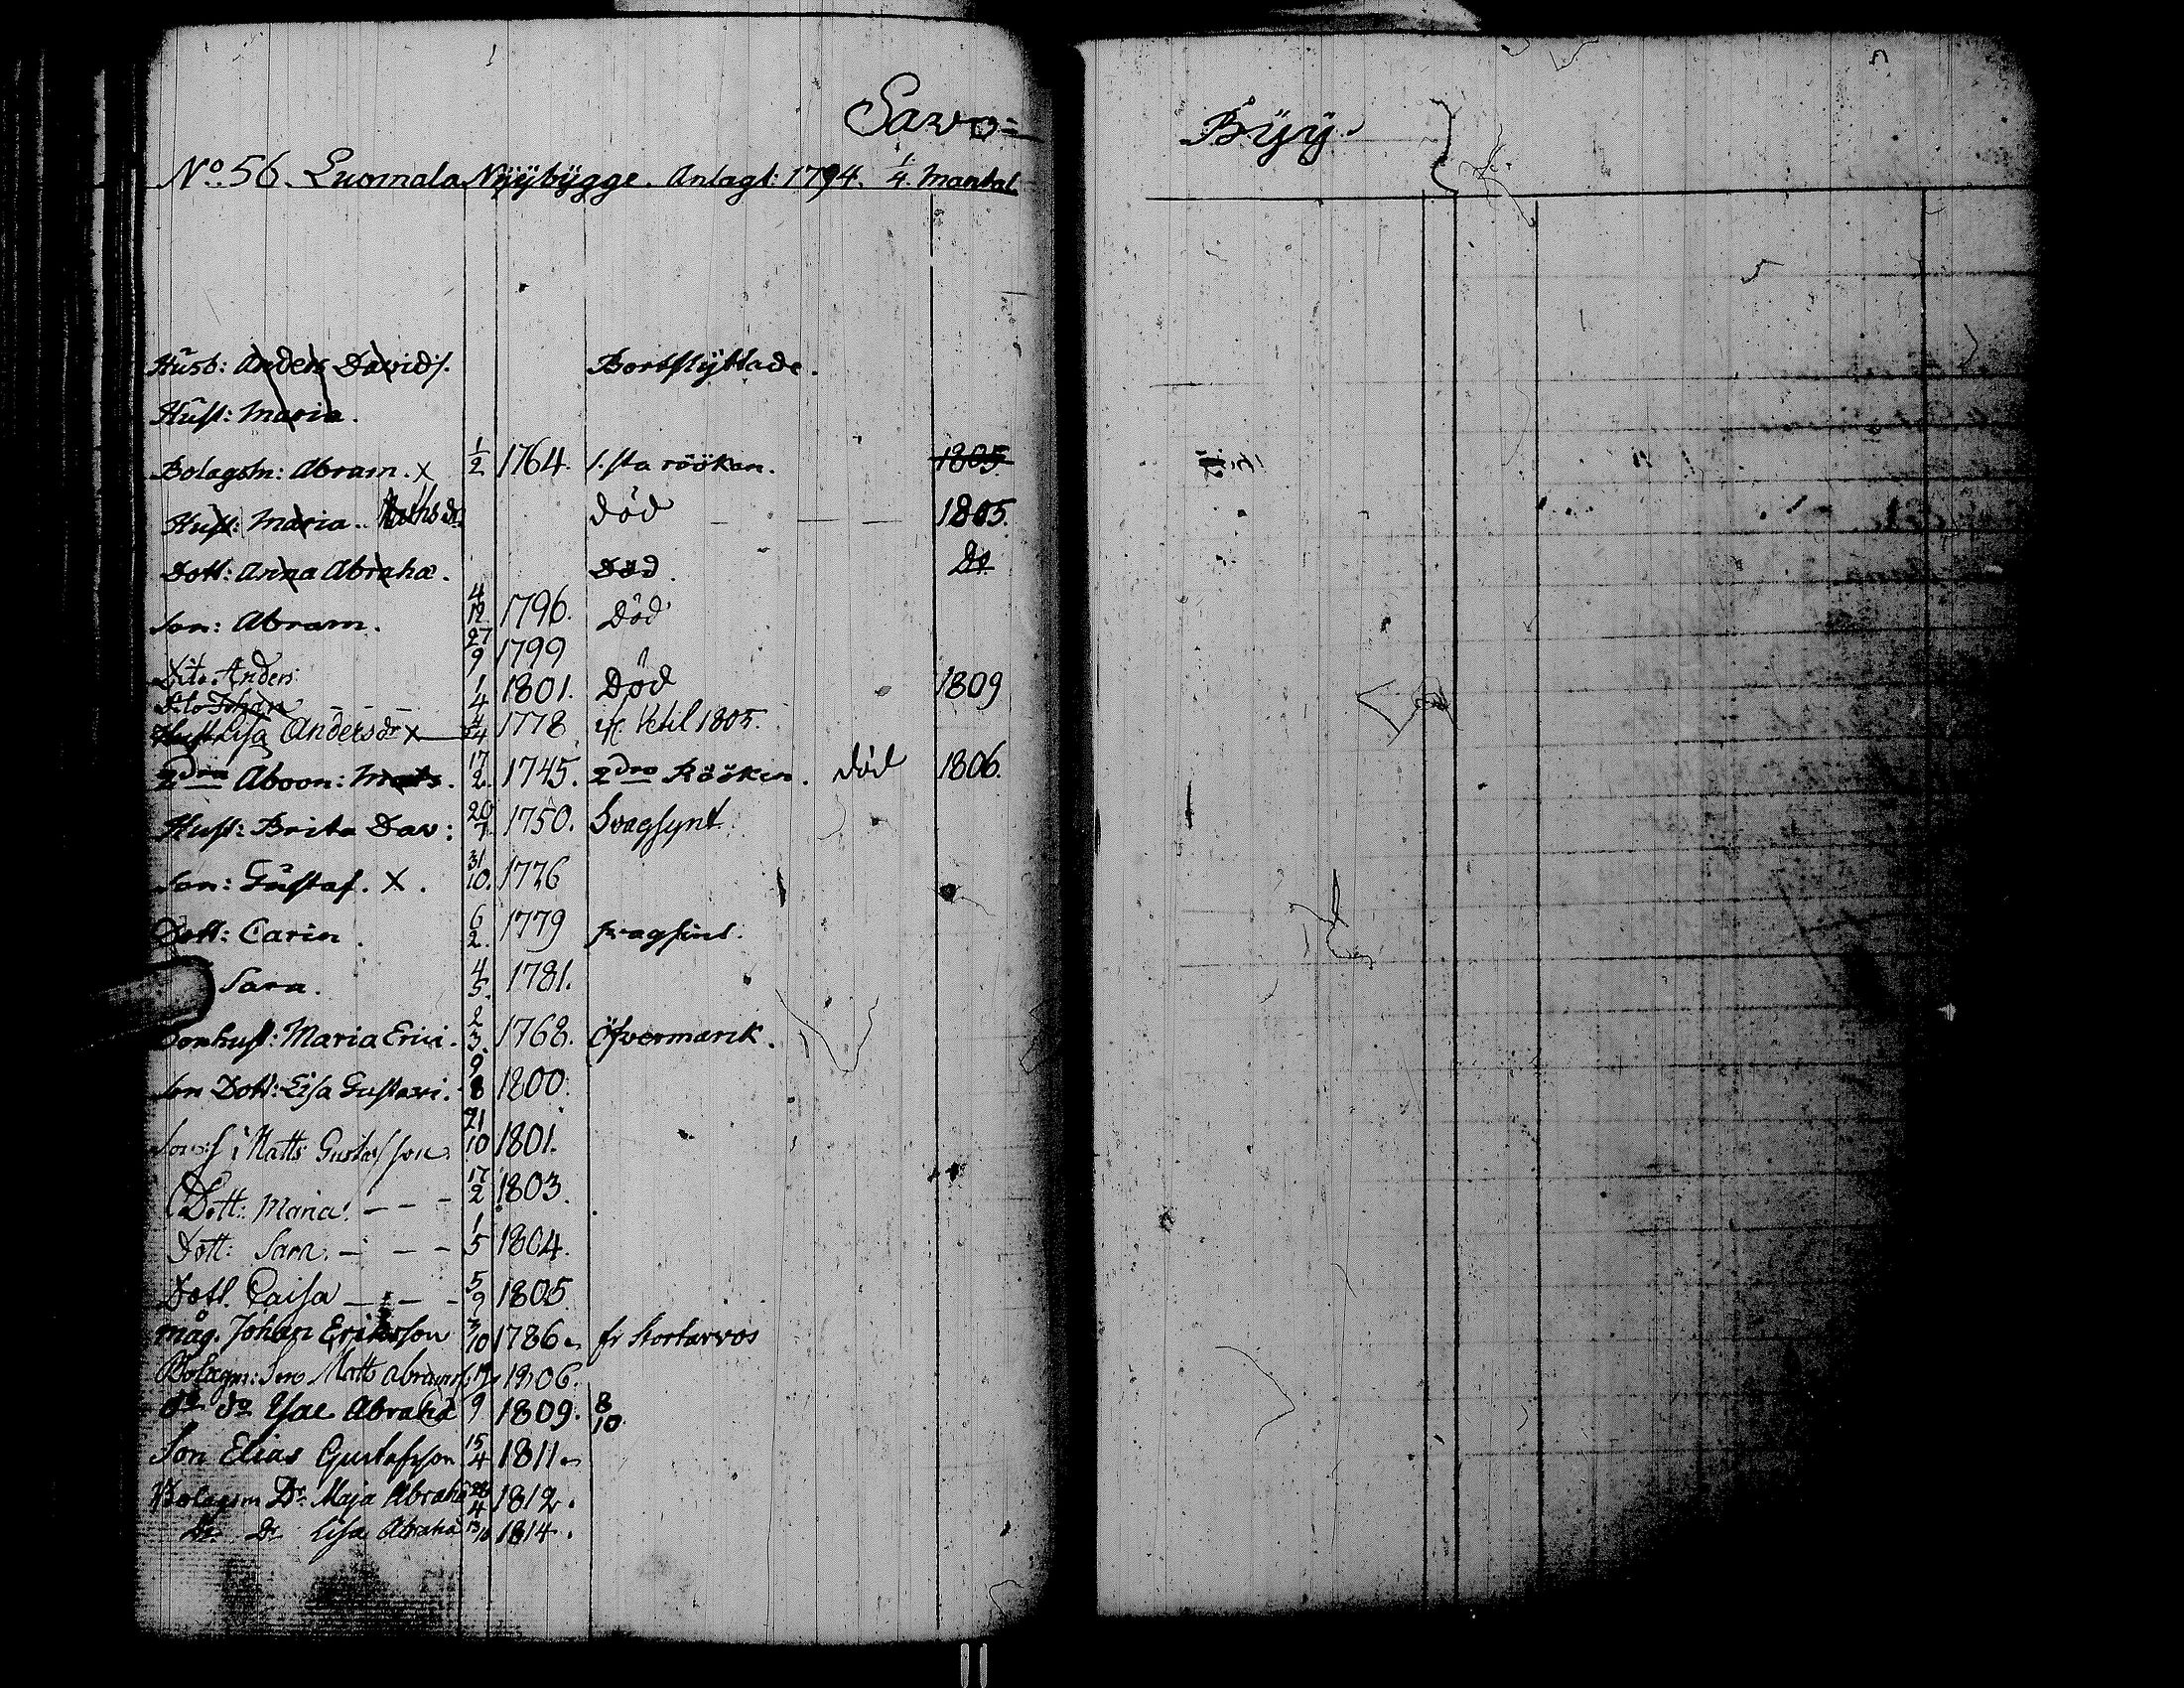 Savo= Byy.
No. 56. Luomala Nyybygge. Anlagt: 1794. 1/4. Mantal.
Husb: Anders Davids. Bortflyttade.
Hust: Maria.
Bolagsm: Abram. x 1/2 1764. 1805
Hust: Maria. död 1805.
Dott: Anna Abrahæ. Död. Do
Son: Abram. 4/12. 1796. Död
Dito Anders 27/9 1799
Dito Johan 1/4 1801. Död 1809
Hust Lisa Andersdr x 4/4 1778 1805.
2dra Aboon: Mats. 17/2. 1745. 2dra Rööken. död 1806.
Hust: Brita Dav: 20/7. 1750. Svagsynt.
Son: Gustaf. X. 31/10. 1776
Dott: Carin. 6/2. 1779 svagsint.
Sara. 4/5. 1781.
Sonhust: Maria Erici. 2/3. 1768. Öfvermark.
Son Dott: Lisa Gustavi. 9/8 1800.
Matts Gustafsson 21/10 1801.
Dott: Maria. - - - 17/2 1803.
Dott: Sara. - - - 5 1804.
Dott. Caisa - - - 5/9 1805
måg. Johan Eriksson /10 1786 fr
Bolagm: Son Matts Abrams 1806.
do do Isac Abrahæ 9 1809. 8/10.
Son Elias Gustafsson 15/4 1811
Bolagsm Dr Maja Abrahæ 28/4 1812.
Do Dr Lisa Abrahæ 1814.